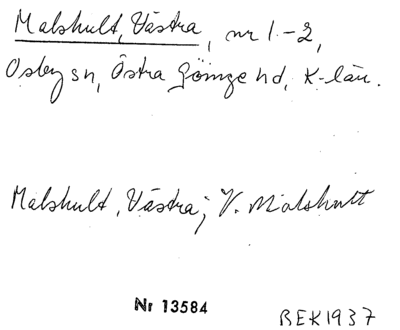 Malshult, Västra, nr 1-2,
Osby sn, Östra Göinge hd, K-län.
Malshult, Västra; V. Malshult
Nr 13584
BEK1937